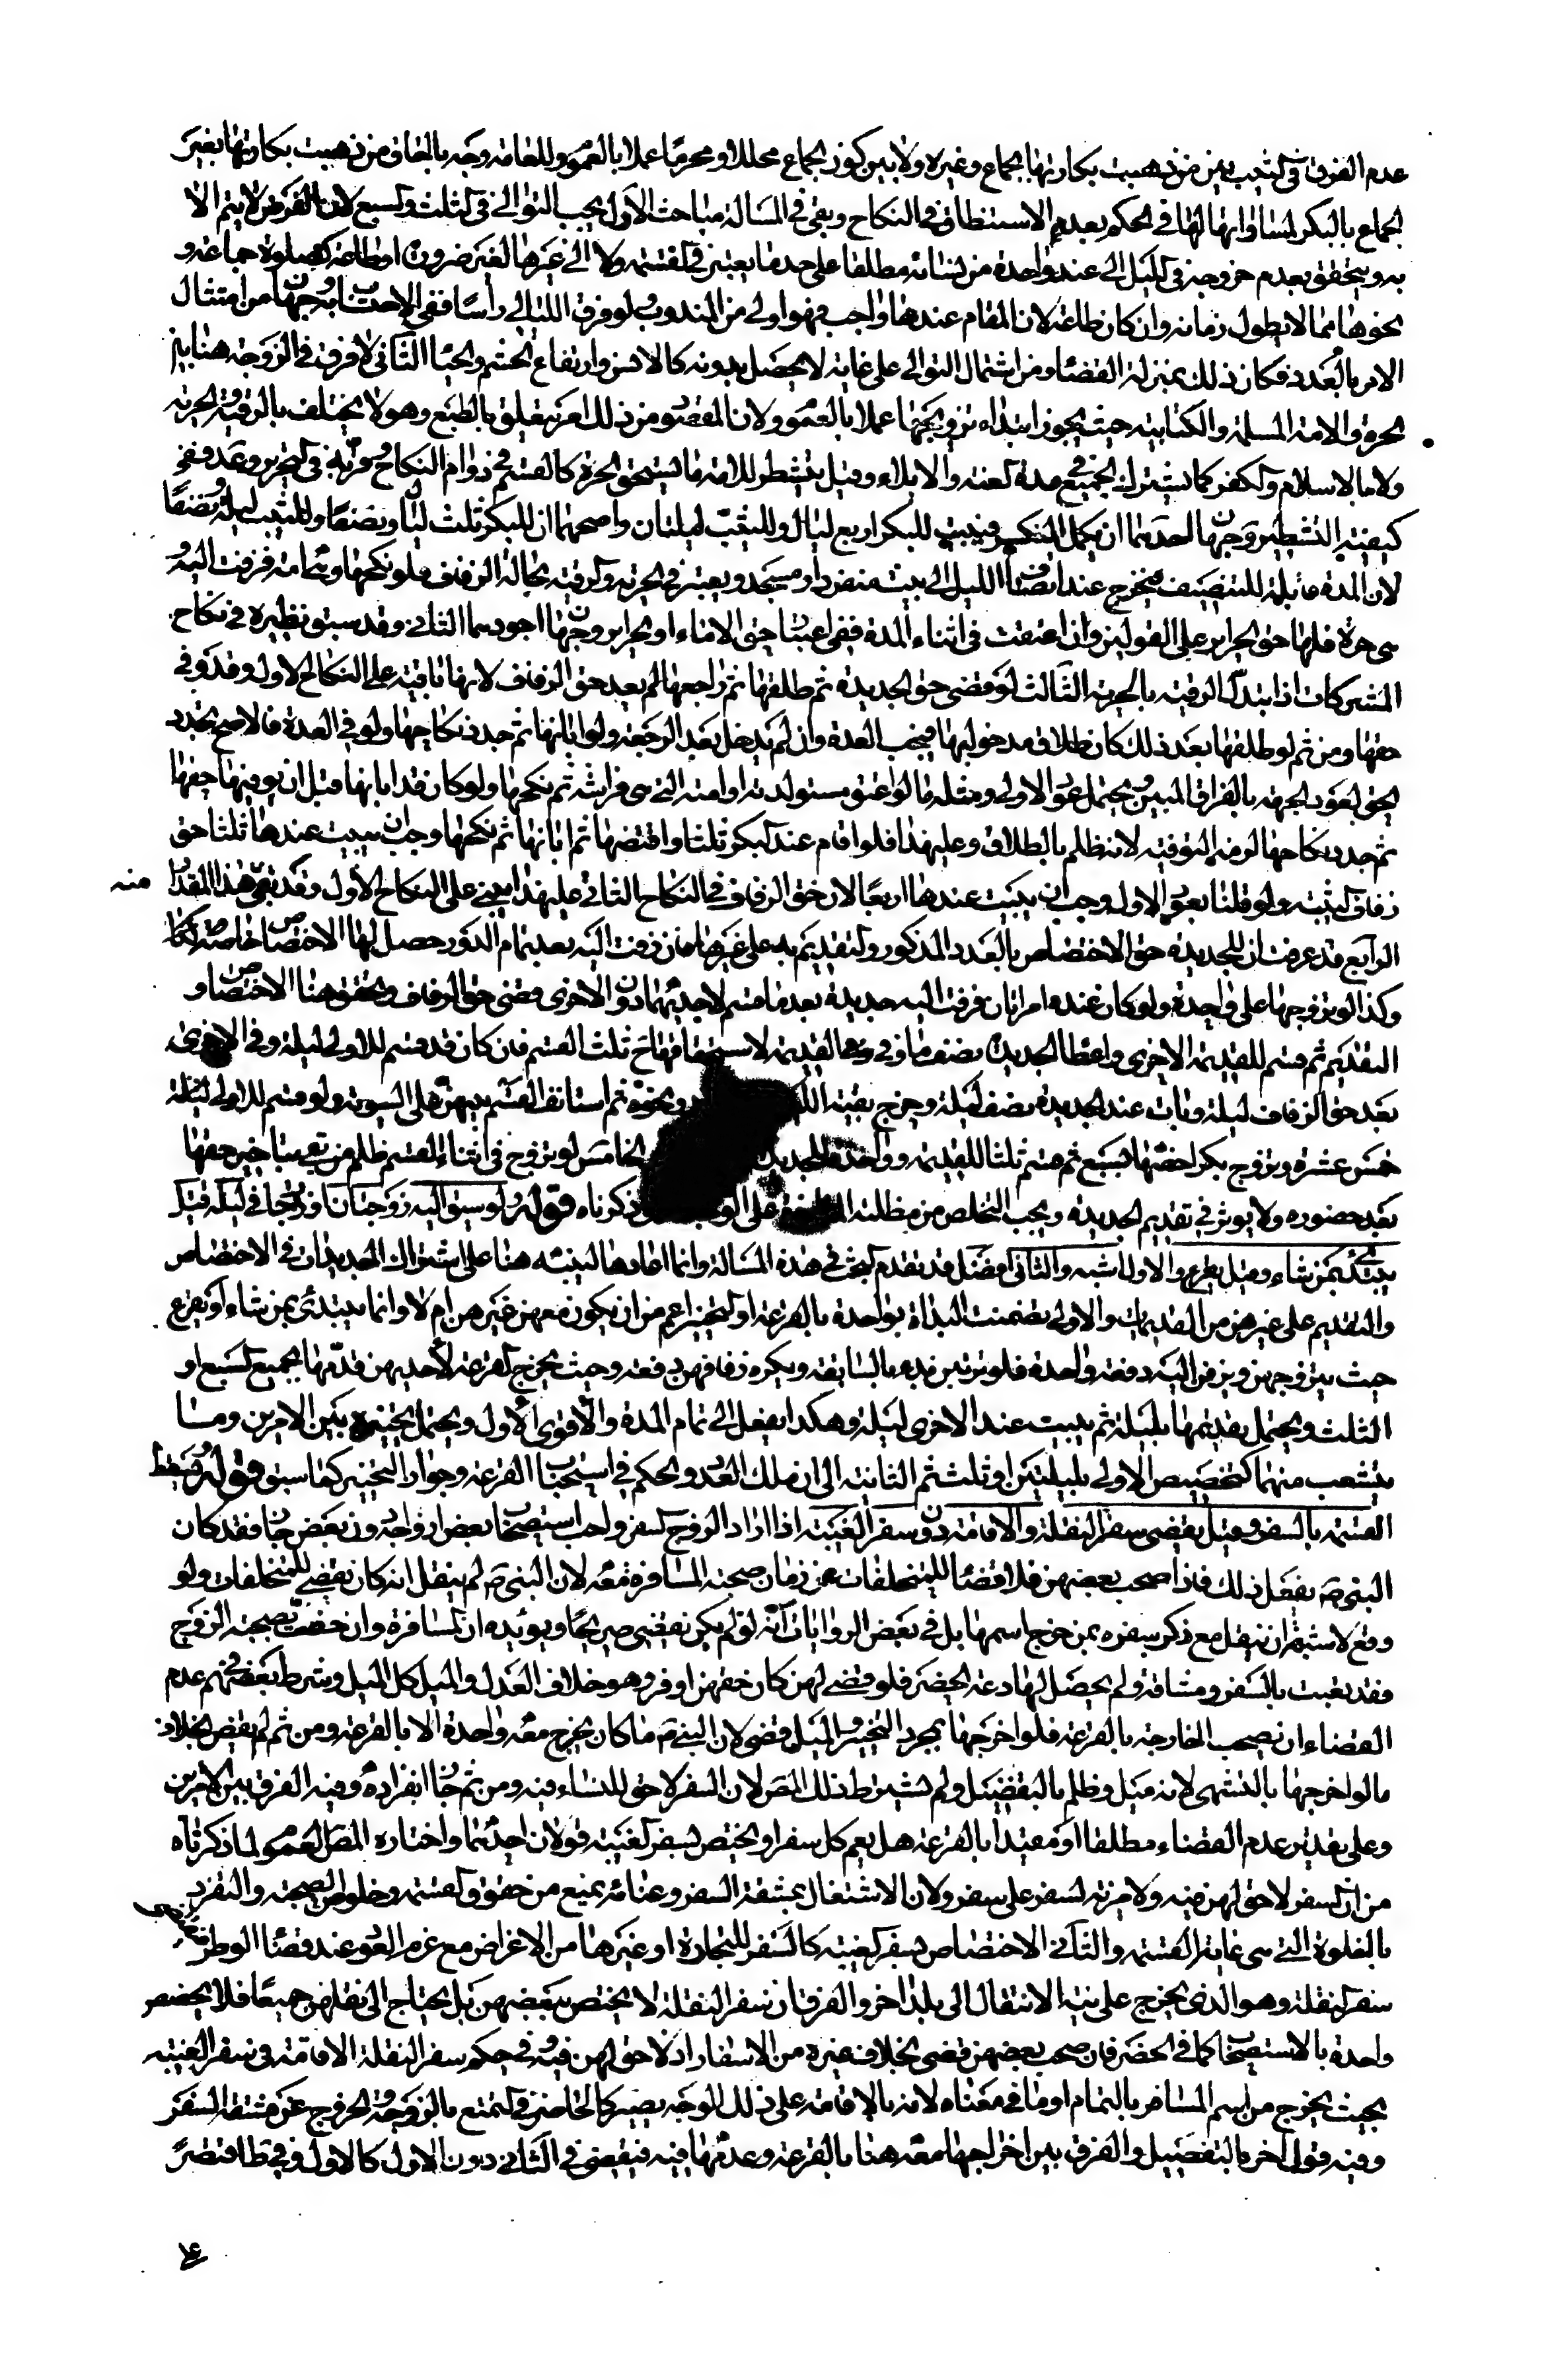 عدم الفرق في الثيب بين من ذهبت بكارتها بجماع وغيره ولا بين كون الجماع محللا او محرما عملا بالعموم وللعامة وجه بالحاق من ذهبت بكارتها بغير
الجماع بالبكر لمساواتها لها في الحكم بعدم الاستنطاق في النكاح وبقى في المسالة مباحث الاول يجب التوالي في الثلث والسبع لان الغرض لا يتم الا
به ويتحقق بعدم خروجه في الليل الى عند واحدة من نسائه مطلقا على حد ما يعتبر في القسمة ولا الى غيرها لغير ضرورة او طاعة كصلوة جماعة و
نحوها مما لا يطول زمانه وان كان طاعة لان المقام عندها واجب فهو اولى من المندوب لو فرق الليالي راسا ففي الاحتساب به وجهان من امتثال
الامر بالعدد فكان ذلك بمنزلة القضاء ومن اشتمال التوالي على غاية لا تحصل بدونه كالانس وارتفاع الحشمة والحياء الثاني لا فرق في الزوجة هنا بين
الحرة والامة المسلمة والكتابية حيث يجوز ابتداء تزويجها عملا بالعموم ولان المقصود من ذلك امر يتعلق بالطبع وهو لا يختلف بالرقية والحرية
ولا بالاسلام والكفر كما يشترك الجميع في مدة العنة والايلاء وقيل يتشطر للامة ما تستحق الحرة كالقسم في دوام النكاح وقربه في التحرير وعده ففي
كيفية التشطير وجهان احدهما ان يكمل المنكسر فيثبت للبكر اربع ليال وللثيب ليلتان واصحهما ان للبكر ثلث ليال ونصفا وللثيب ليلة ونصفا
لان المدة قابلة للتنصيف فيخرج عند انتصاف الليل الى بيت منفرد او مسجد ويعتبر في الحرية والرقية بحالة الزفاف فلو نكحها وهي امة فزفت اليه و
هي حرة فلها حق الحرائر على القولين وان اعتقت في اثناء المدة ففي اعتبار حق الاماء او الحرائر وجهان اجودهما الثاني وقد سبق نظيره في نكاح
المشركات اذا تبدل الرقية بالحرية الثالث لو قضى حق الجديدة ثم طلقها ثم راجعها لم يعد حق الزفاف لانها باقية على النكاح الاول وقد وفي
حقها ومن ثم لو طلقها بعد ذلك كان طلاق مدخول بها فيجب العدة وان لم يدخل بعد الرجعة ولو ابانها ثم جدد نكاحها ولو في العدة فالاصح تجدد
الحق لعود الجهة بالفراق المبين ويحتمل عود الاولى ومثله ما لو اعتق مستولدته او امته التي هي فراشه ثم نكحها ولو كان قد ابانها قبل ان يوفيها حقها
ثم جدد نكاحها لزمه التوفية لانه ظلم بالطلاق وعليهذا فلو اقام عند البكر ثلثا وافتضها ثم ابانها ثم نكحها وجب ان يبيت عندها ثلثا حق
زفاف الثيب ولو قلنا بعود الاول وجب ان يبيت عندها اربعا لان حق الزفاف في النكاح الثاني عليهذا مبني على النكاح الاول وقد بقي هذا المقدار منه
الرابع قد عرفت ان للجديدة حق الاختصاص بالعدد المذكور والتقديم به على غيرها فان زفت اليه بعد تمام الدور حصل لها الاختصاص خاصة
وكذا لو تزوجها على واحدة ولو كان عنده امراتان فزفت اليه جديدة بعد ما قسم لاحديهما دون الاخرى قضى حق الزفاف ويحقق هنا الاختصاص و
التقديم ثم قسم للقديمة الاخرى واعطا الجديدة نصف ما وفى القديمة لاستحقاقها ح ثلث القسم فان كان قد قسم للاولى ليلة وفى الاخرى
بعد حق الزفاف ليلة وبات عند الجديدة نصف ليلة وخرج بقية ونحوه ثم استانف القسم بينهن على السوية ولو قسم للاولى ليلة
خمس عشرة وتزوج بكرا خصها بسبع ثم قسم ثلثا للقديمة وواحدة للجديدة الخامس لو تزوج في اثناء القسم ظلم من بقي بتاخير حقها
بعد حضوره ولا يوثر في تقديم الجديدة ويجب التخلص من مظلمة على ذكرناه قوله ولو سيق اليه زوجتان او زوجات في ليلة قيل
يبتدئ بمن شاء وقيل يقرع والاول اشبه والثاني افضل قد تقدم البحث في هذه المسالة وانما اعادها لينبه هنا على اشتراك الجديدات في الاختصاص
والتقديم على غيرهن من القديمات والاولى تضمنت البداة بواحدة بالقرعة او التخيير اعم من ان يكون معهن غيرهن ام لا وانما يبتدئ بمن شاء او يقرع
حيث يتزوجهن ويزفن اليه دفعة واحدة فلو ترتبن بدء بالسابقة ويكره زفافهن دفعة وحيث يخرج القرعة لاحديهن قدمها بجميع السبع او
الثلث ويحتمل تقديمها بليلة ثم يبيت عند الاخرى ليلة وهكذا يفعل الى تمام المدة والاقوى الاول ويحتمل تخييره بين الامرين وما
يتشعب منهما كتخصيص الاولى بليلتين او ثلث ثم الثانية الى ان ملك العدد والحكم في استحباب القرعة وجواز التخيير كما سبق قوله وتسقط
القسمة بالسفر وقيل يقضي سفر النقلة والاقامة دون سفر الغيبة اذا اراد الزوج السفر واحب استصحاب بعض ازواجه دون بعض جاز فقد كان
النبي ص يفعل ذلك فاذا صحب بعضهن فلا قضاء للمتخلفات عن زمان صحبة المسافرة معه لان النبي ص لم ينقل انه كان يقضي للمتخلفات ولو
وقع لاشبه ان ينقل مع ذكر سفره بمن خرج اسمها بل في بعض الروايات انه لم يكن يقضي صريحا ويؤيده ان المسافرة وان خصت بصحبة الزوج
فقد تعبت بالسفر ومشاقه ولم يحصل لها دعة الحضر فلو قضى لهن كان حقهن اوفر وهو خلاف العدل والميل كل الميل وشرط بعضهم عدم
القضاء ان تصحب الخارجة بالقرعة فلو اخرجها بمجرد التخيير والميل قضى لان النبي ص ما كان يخرج معه واحدة الا بالقرعة ومن ثم لم يقض بخلاف
ما لو اخرجها بالتشهي لانه ميل وظلم بالتفضيل ولم يشترط ذلك المص لان السفر لا حق للنساء فيه ومن ثم جاز انفراده وفيه الفرق بين الامرين
وعلى تقدير عدم القضاء مطلقا او مقيدا بالقرعة هل يعم كل سفر او يختص بسفر الغيبة قولان احدهما واختاره المص العموم لما ذكرناه
من ان السفر لا حق لهن فيه ولا مزية لسفر على سفر ولان الاشتغال بمشقة السفر وعنائه يمنع من حقوق القسمة وخلوص الصحبة والتفرد
بالخلوة التي هي غاية القسمة والثاني الاختصاص بسفر الغيبة كالسفر للتجارة او غيرها من الاغراض مع عزم العود عند قضاء الوطر
سفر النقلة وهو الذي يخرج على نية الانتقال الى بلد اخر والفرق ان سفر النقلة لا يختص ببعضهن بل يحتاج الى نقلهن جميعا فلا يخصص
واحدة بالاستصحاب كما في الحضر فان صحب بعضهن قضى بخلاف غيره من الاسفار اذ لا حق لهن فيه وفي حكم سفر النقلة الاقامة في سفر الغيبة
بحيث يخرج من اسم المسافر بالتمام او ما في معناه لانه بالاقامة على ذلك الوجه يصير كالحاضر في التمتع بالزوجة والخروج عن مشقة السفر
وفيه قول اخر بالتفصيل والفرق بين اخراجها معه هنا بالقرعة وعدمها فيه فيقضي في الثاني دون الاول كالاول وفي